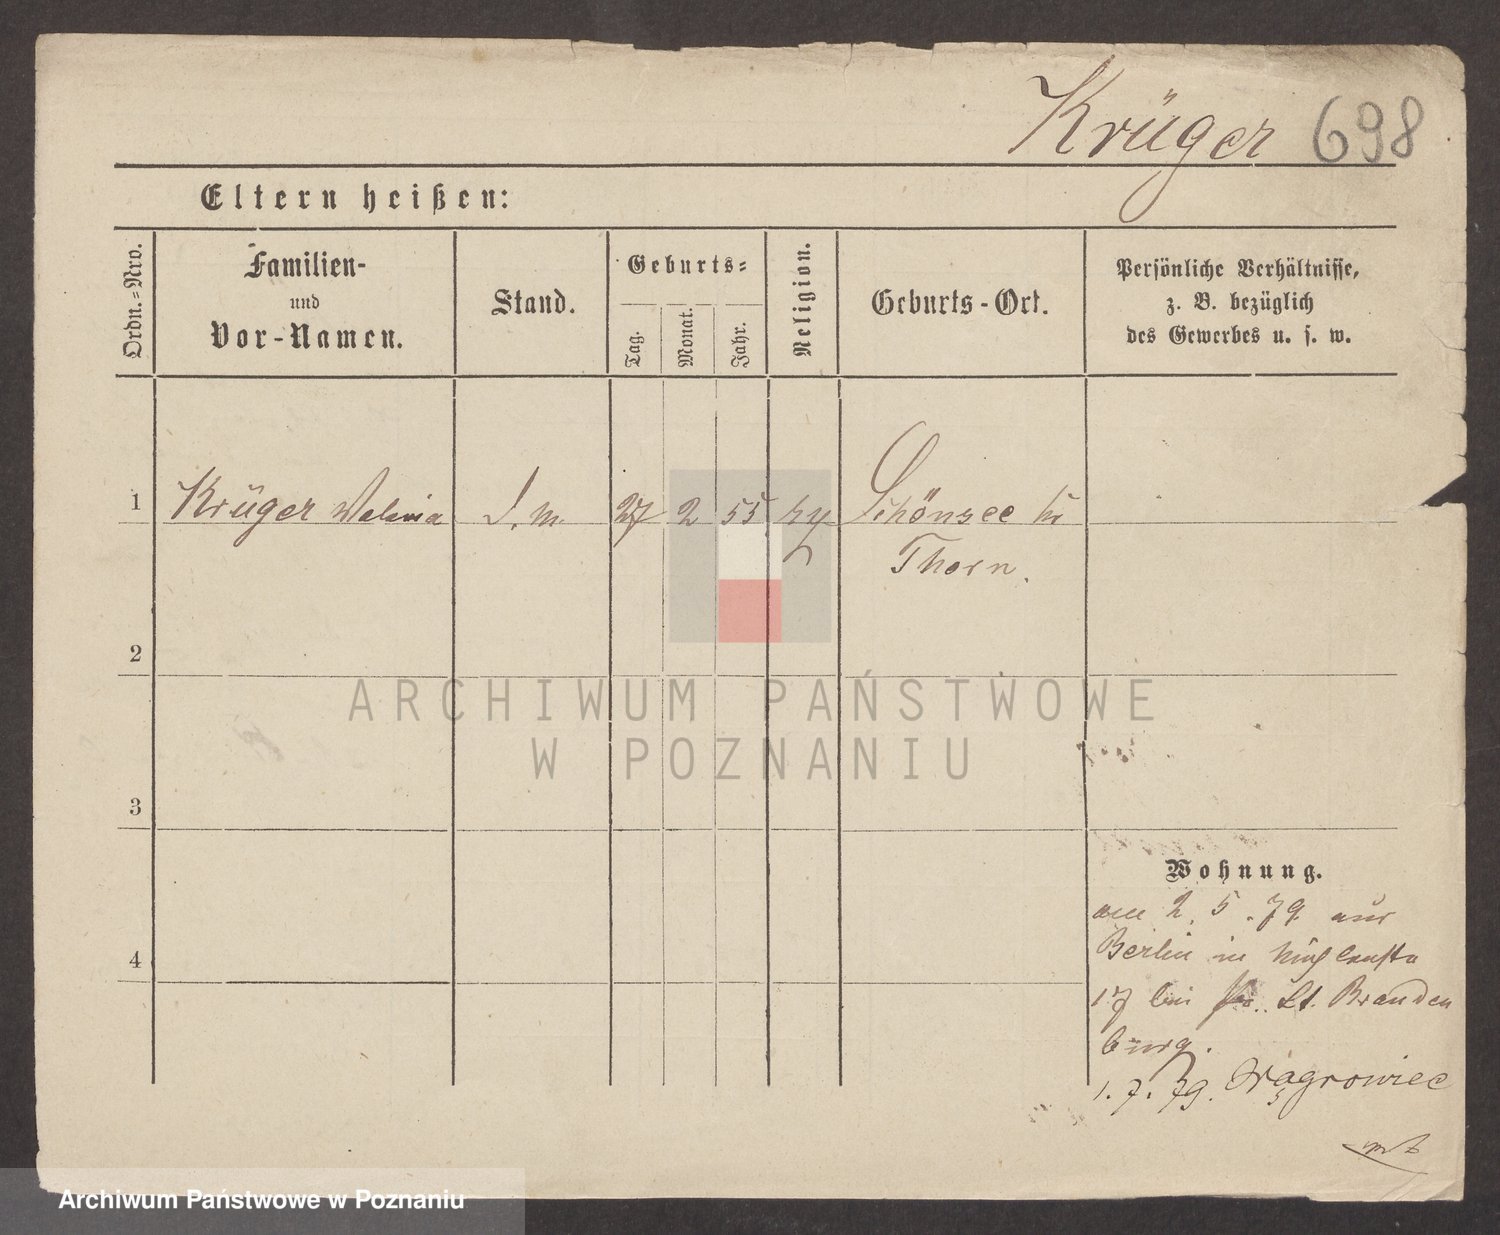 Krüger 698
Eltern heißen:
Ordn.=Nro.
Familien-
und
Vor-Namen.
Stand.
Geburts=
Tag.
Monat.
Jahr.
Religion.
Geburts-Ort.
Persönliche Verhältnisse,
z. B. bezüglich
des Gewerbes u. s. w.
1 Krüger Valeria 27 2 55 Schönsee
Thorn.
2
3
4
ARCHIWUM PAŃSTWOWE
W POZNANIU
Wohnung.
2. 5. 79. aus
Berlin in
17 bei Lt. Branden
burg.
1. 7. 79. Wągrowiec
Archiwum Państwowe w Poznaniu